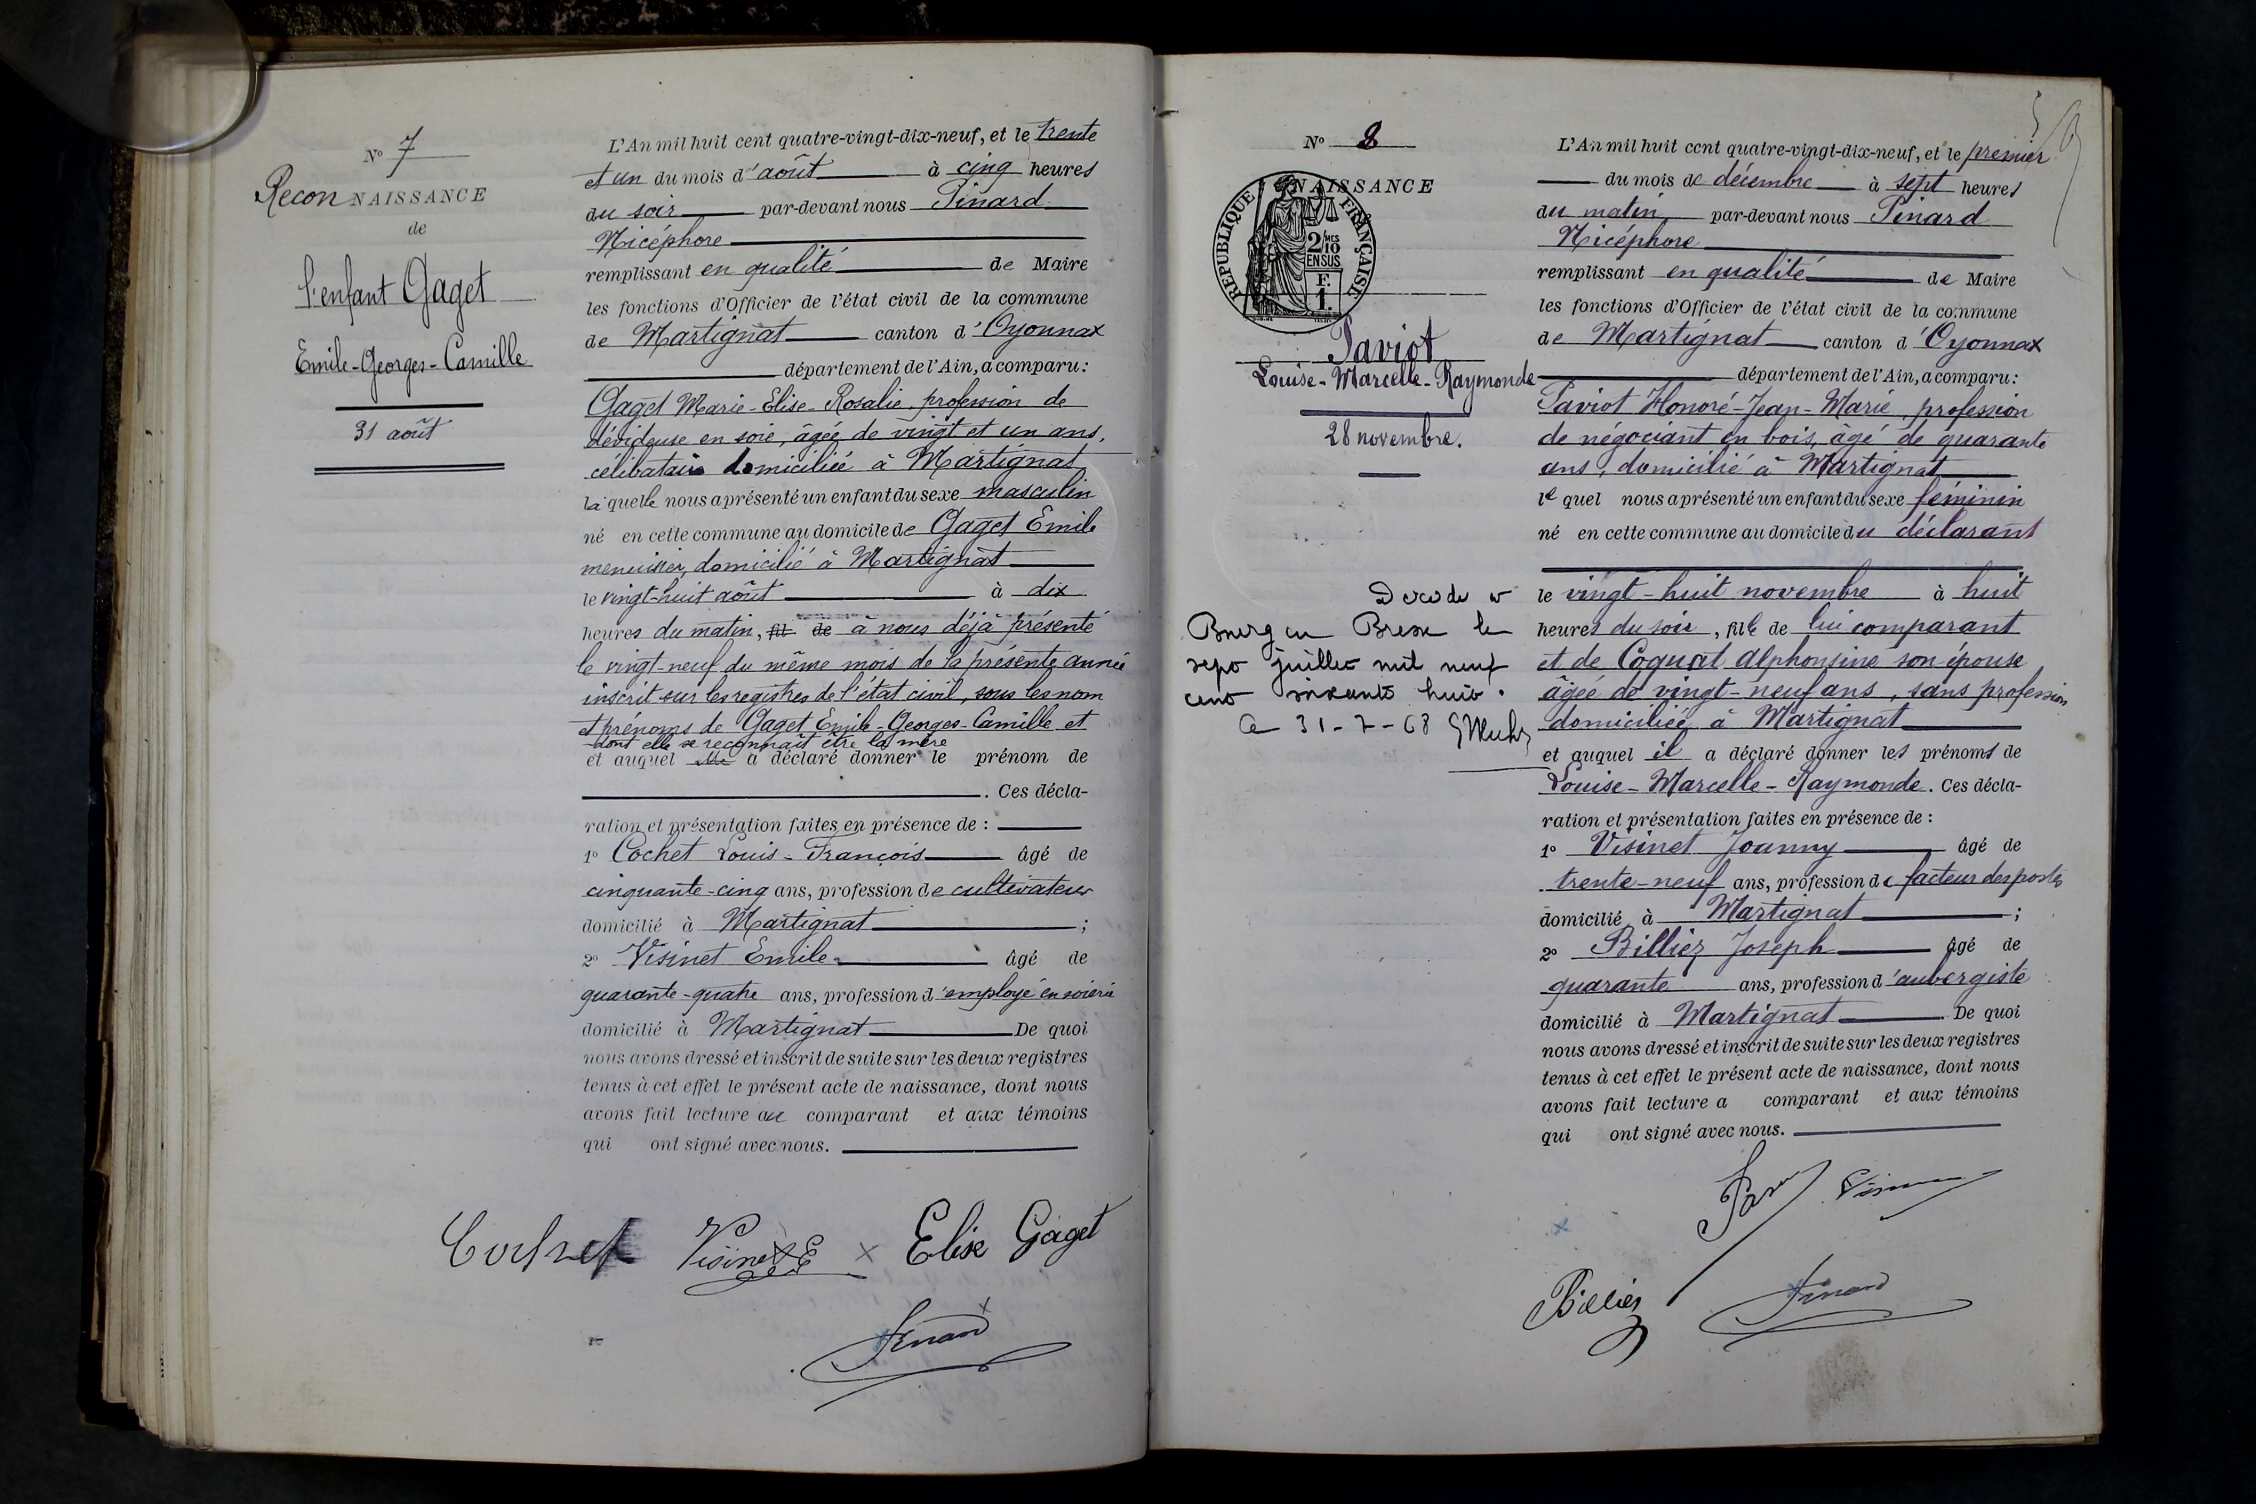 N° 7
Reconnaissance
de
l'enfant Gaget
Emile-Georges-Camille
31 août
L'An mil huit cent quatre-vingt-dix-neuf, et le trente
et un du mois d'août à cinq heures
du soir par-devant nous Pinard
Nicéphore
remplissant en qualité de Maire
les fonctions d'Officier de l'état civil de la commune
de Martignat canton d'Oyonnax
département de l'Ain, a comparu :
Gaget Marie-Elise-Rosalie, profession de
dévideuse en soie, âgée de vingt et un ans,
célibataire domiciliée à Martignat
laquelle nous a présenté un enfant du sexe masculin
né en cette commune au domicile de Gaget Emile
menuisier, domicilié à Martignat
le vingt-huit août à dix
heures du matin, fil de à nous déjà présenté
le vingt-neuf du même mois de la présente année
inscrit sur les registres de l'état civil, sous les nom
et prénoms de Gaget Emile-Georges-Camille et
dont elle se reconnaît être la mère
et auquel elle a déclaré donner le prénom de
. Ces décla-
ration et présentation faites en présence de :
1° Cochet Louis-François âgé de
cinquante-cinq ans, profession de cultivateur
domicilié à Martignat ;
2° Visinet Emile âgé de
quarante-quatre ans, profession d'employé en soierie
domicilié à Martignat De quoi
nous avons dressé et inscrit de suite sur les deux registres
tenus à cet effet le présent acte de naissance, dont nous
avons fait lecture au comparant et aux témoins
qui ont signé avec nous.
Cochet Visinet E x Elise Gaget
Pinard
N° 8
NAISSANCE
REPUBLIQUE FRANÇAISE
2/10 MES
EN SUS
F.
1.
Paviot
Louise-Marcelle-Raymonde
28 novembre.
Décédée à
Bourg en Bresse le
sept juillet mil neuf
cent soixante huit.
Le 31-7-68
L'An mil huit cent quatre-vingt-dix-neuf, et le premier
du mois de décembre à sept heures
du matin par-devant nous Pinard
Nicéphore
remplissant en qualité de Maire
les fonctions d'Officier de l'état civil de la commune
de Martignat canton d'Oyonnax
département de l'Ain, a comparu :
Paviot Honoré-Jean-Marie, profession
de négociant en bois, âgé de quarante
ans, domicilié à Martignat
lequel nous a présenté un enfant du sexe féminin
né en cette commune au domicile du déclarant
le vingt-huit novembre à huit
heures du soir, fille de lui comparant
et de Coquat Alphonsine son épouse
âgée de vingt-neuf ans, sans profession
domiciliée à Martignat
et auquel il a déclaré donner les prénoms de
Louise-Marcelle-Raymonde. Ces décla-
ration et présentation faites en présence de :
1° Visinet Joanny âgé de
trente-neuf ans, profession de facteur des postes
domicilié à Martignat ;
2° Billiez Joseph âgé de
quarante ans, profession d'aubergiste
domicilié à Martignat De quoi
nous avons dressé et inscrit de suite sur les deux registres
tenus à cet effet le présent acte de naissance, dont nous
avons fait lecture a comparant et aux témoins
qui ont signé avec nous.
Billiez Pinard